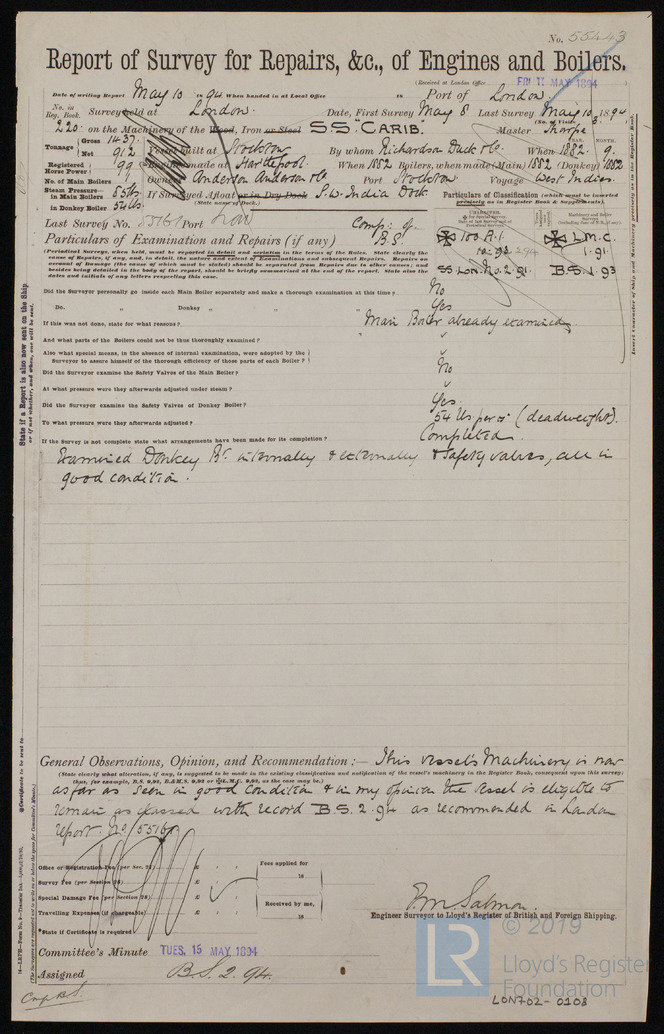 No. 55443
Report of Survey for Repairs, &c., of Engines and Boilers.
(Received at London Office FRI. 11 MAY 1894
Date of writing Report May 10 1894 When handed in at Local Office 18 Port of London
No. in Reg. Book. Survey held at London. Date, First Survey May 8 Last Survey May 10 1894
(No. of Visits 3)
220 on the Machinery of the Wood, Iron or Steel S.S. "CARIB. Master Thorpe
Tonnage Gross 1437 Net 912 Vessel built at Stockton By whom Richardson Duck & Co. When 1882. 9.
Registered Horse Power 99 Engines made at Hartlepool When 1882 Boilers, when made (Main) 1882 (Donkey) 1882
No. of Main Boilers 1 Owners Anderson Anderson & Co Port Stockton Voyage West Indies.
Steam Pressure in Main Boilers 85 lbs in Donkey Boiler 54 lbs. If Surveyed Afloat or in Dry Dock S.W. India Dock
(State name of Dock.)
Particulars of Classification (which must be inserted precisely as in Register Book & Supplements).
Last Survey No. 55161 Port Lon
Comp: g. B.S.
CHARACTER.
Machinery and Boiler Surveys
100 A.1. L.M.C.
10.92 2.94 1.91.
SS. LON. No. 2. 91. B.S. 1. 93
Particulars of Examination and Repairs (if any)
(Periodical Surveys, when held, must be reported in detail and seriatim in the terms of the Rules. State clearly the cause of Repairs, if any, and, in detail, the nature and extent of Examinations and subsequent Repairs. Repairs on account of Damage (the cause of which must be stated) should be separated from Repairs due to other causes; and besides being detailed in the body of the report, should be briefly summarised at the end of the report. State also the dates and initials of any letters respecting this case.
Did the Surveyor personally go inside each Main Boiler separately and make a thorough examination at this time? No
Do. " Donkey " " " Yes
If this was not done, state for what reasons? Main Boiler already examined.
And what parts of the Boilers could not be thoroughly examined?
Also what special means, in the absence of internal examination, were adopted by the Surveyor to assure himself of the thorough efficiency of those parts of each Boiler?
Did the Surveyor examine the Safety Valves of the Main Boiler? No
At what pressure were they afterwards adjusted under steam?
Did the Surveyor examine the Safety Valves of Donkey Boiler? Yes.
To what pressure were they afterwards adjusted? 54 lbs. per □" (deadweight).
If the Survey is not complete state what arrangements have been made for its completion? Completed.
Examined Donkey Br. internally & externally & Safety valves, all in
good condition.
General Observations, Opinion, and Recommendation :— This vessel's Machinery is now
(State clearly what alteration, if any, is suggested to be made in the existing classification and notification of the vessel's machinery in the Register Book, consequent upon this survey; thus, for example, B.S. 9,92, B.&M.S. 9,92 or L.M.C. 9,92, as the case may be.)
as far as seen in good condition & in my opinion the vessel is eligible to
remain as classed with record B.S. 2. 94 as recommended in London
report No. 55161.
Office or Registration Fee (per Sec. 27) £
Survey Fee (per Section 28) £
Special Damage Fee (per Section 28) £
Travelling Expenses (if chargeable) £
*State if Certificate is required
Fees applied for 18
Received by me, 18
F.M. Salmon.
Engineer Surveyor to Lloyd's Register of British and Foreign Shipping.
Committee's Minute TUES. 15 MAY 1894
Assigned B.S. 2. 94.
State if a Report is also now sent on the Ship, or if not whether, and when, one will be sent.
Insert Character of Ship and Machinery precisely as in Register Book.
© 2019
LR Lloyd's Register Foundation
LON702-0108